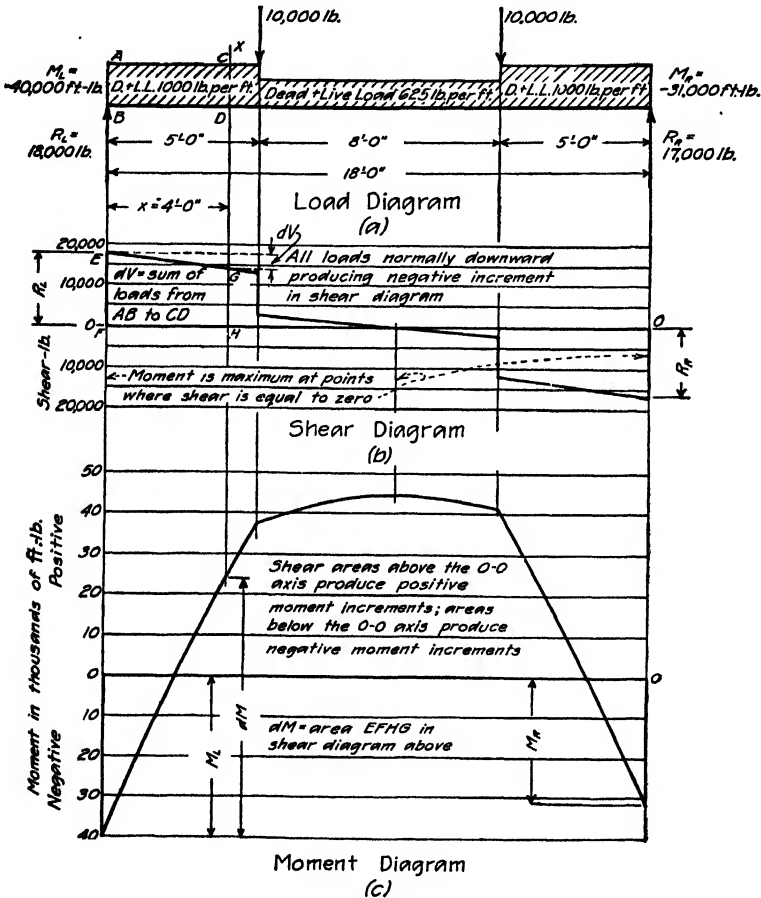 10,000 lb.
10,000 lb.
A
C
X
M_L =
-40,000 ft-lb.
D.+L.L. 1000 lb. per ft.
Dead + Live Load 625 lb. per ft.
D.+L.L. 1000 lb. per ft.
M_R =
-31,000 ft-lb.
B
D
R_L =
18,000 lb.
5'-0"
8'-0"
5'-0"
R_R =
17,000 lb.
18'-0"
x = 4'-0"
Load Diagram
(a)
20,000
E
dV
All loads normally downward
producing negative increment
in shear diagram
R_L
dV = sum of
loads from
AB to CD
10,000
G
0
F
H
0
Shear-lb.
10,000
Moment is maximum at points
where shear is equal to zero
R_R
20,000
Shear Diagram
(b)
50
40
30
20
10
0
10
20
30
40
Moment in thousands of ft.-lb.
Negative
Positive
Shear areas above the 0-0
axis produce positive
moment increments; areas
below the 0-0 axis produce
negative moment increments
0
M_L
dM
dM = area EFHG in
shear diagram above
M_R
Moment Diagram
(c)